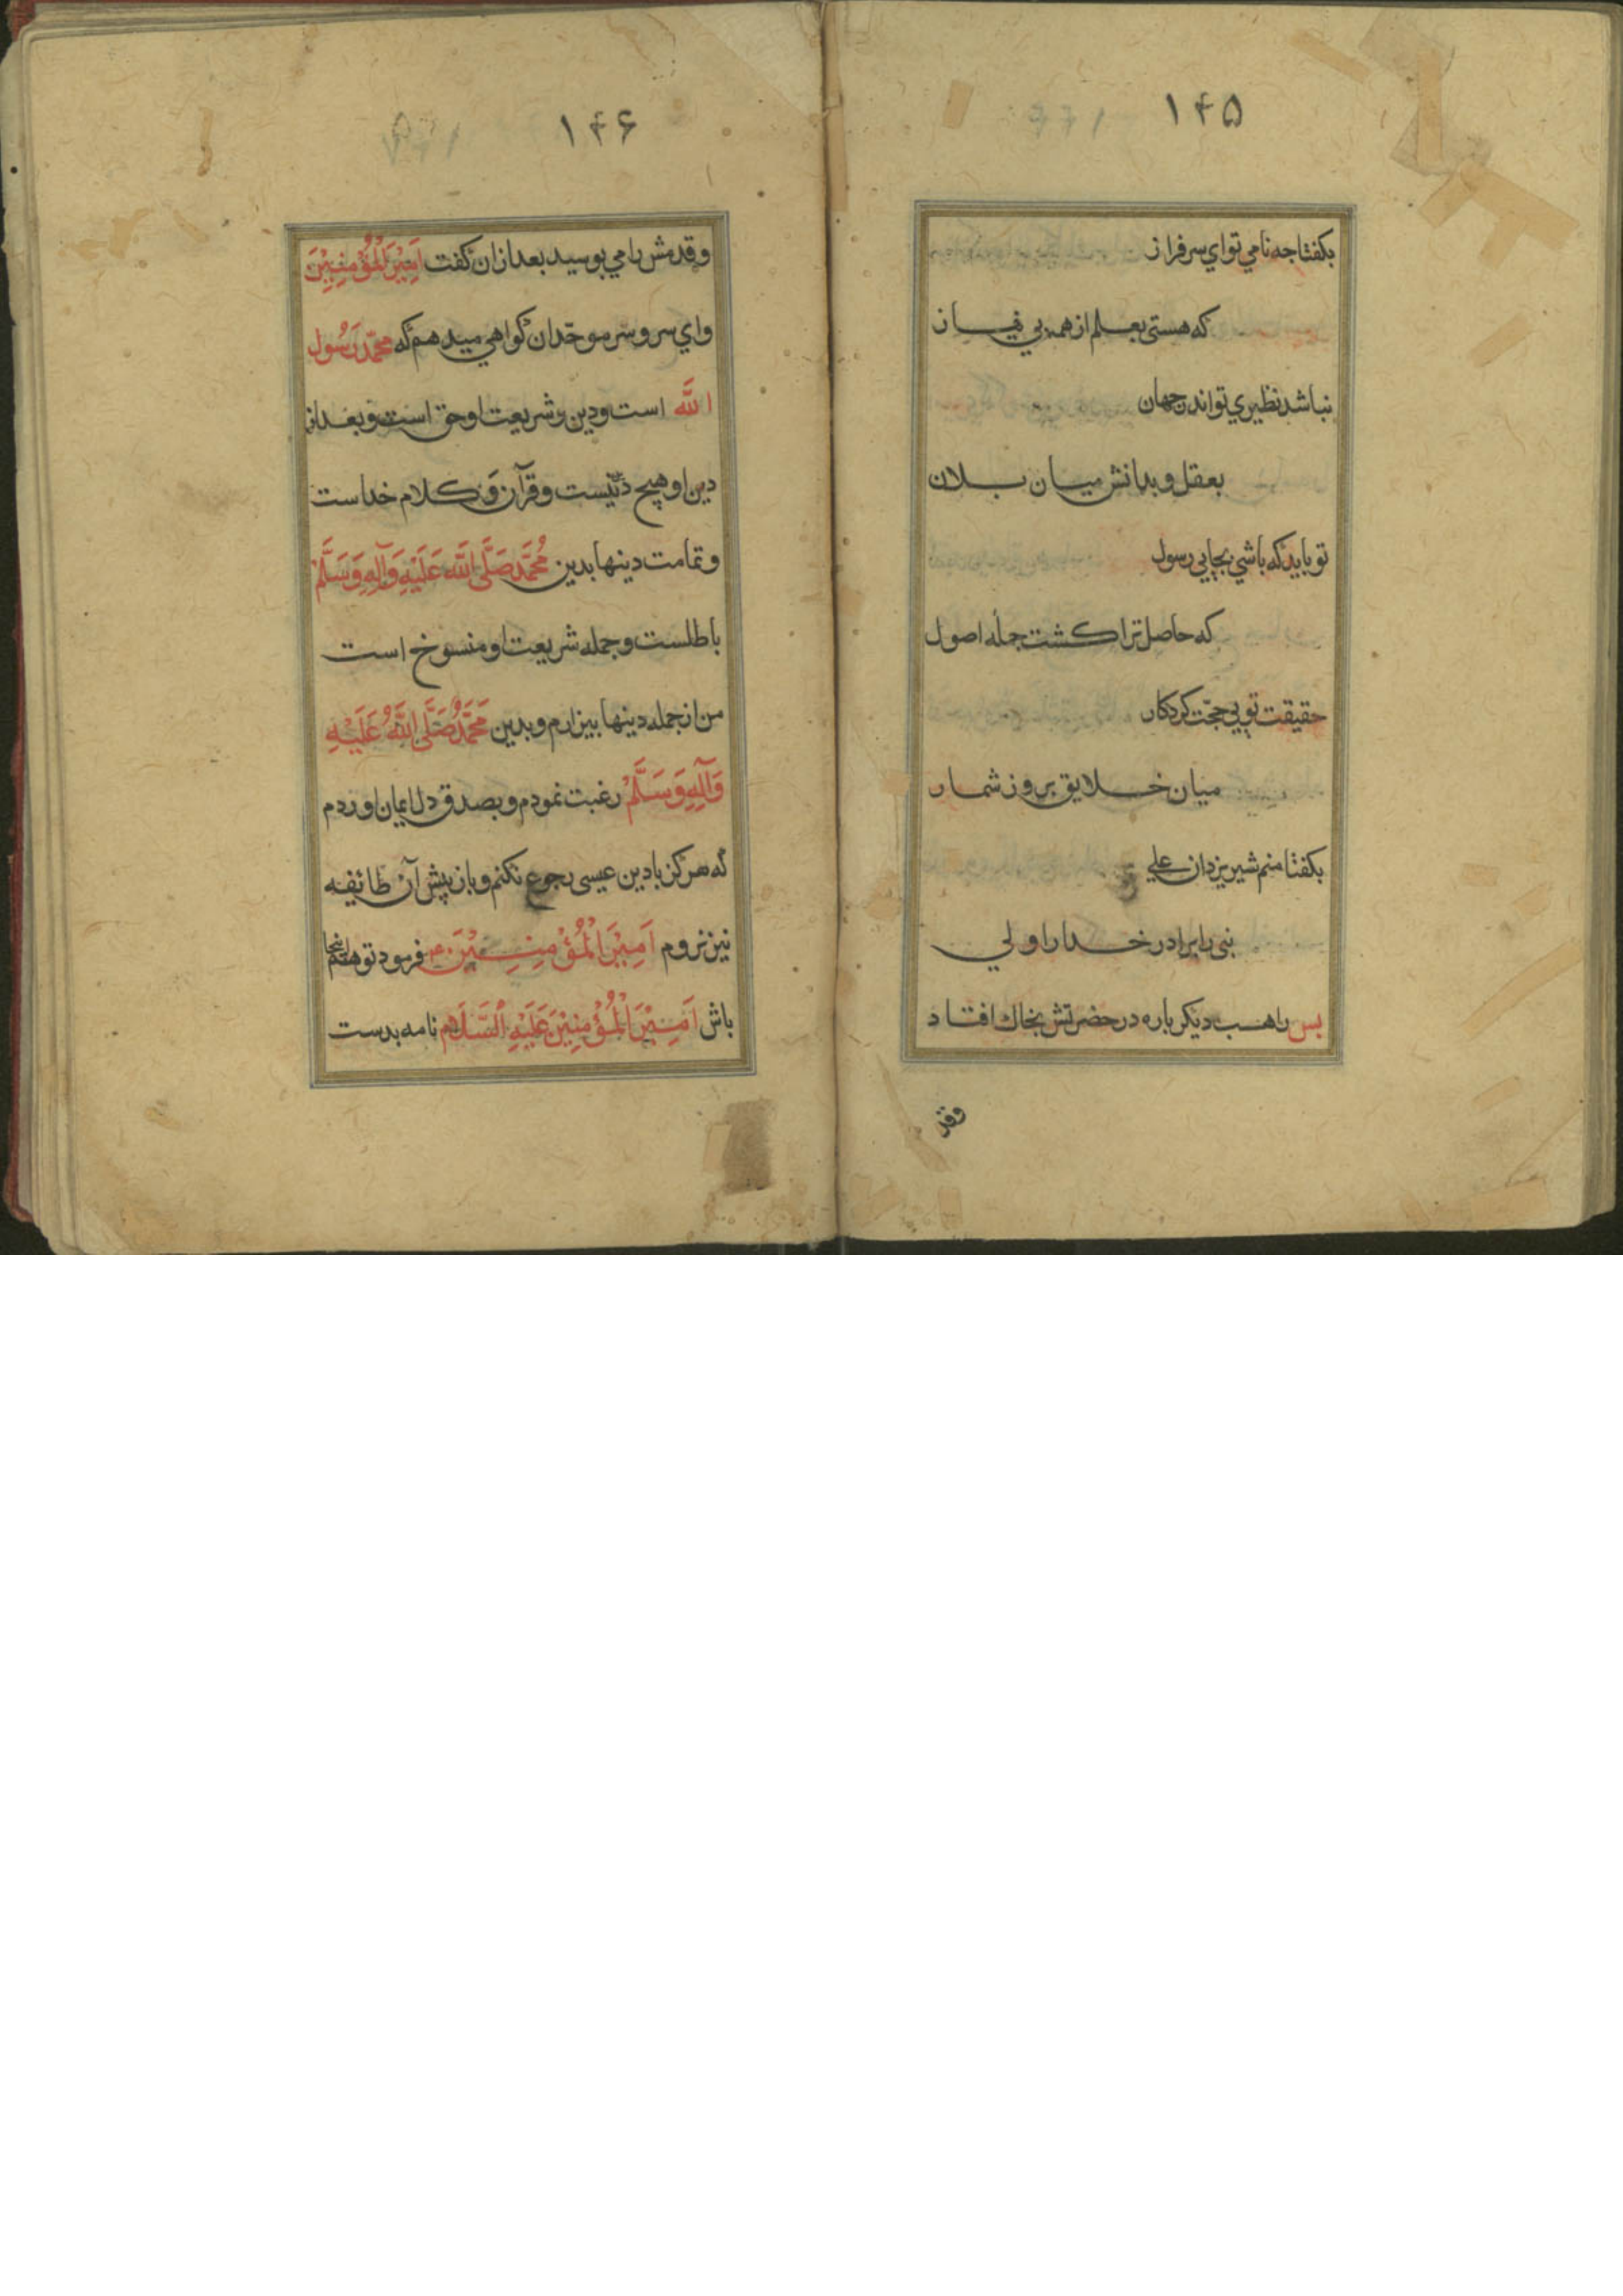 ۱۴۵
بکفتا جه نامي تو اي سرفراز
که هستی بعلم از همه بي نیاز
نباشد نظیري تو اندر جهان
بعقل و بدانش میان بلان
تو باید که باشي بجایي رسول
که حاصل ترا کشت جمله اصول
حقیقت تویي حجّت کردکار
میان خلایق بروز شمار
بکفتا منم شیر یزدان علي
نبی را برادر خدا را ولي
بس راهب دیکر باره در حضرتش بخاك افتاد
وقد
۱۴۶
و قدمش را مي بوسید بعد ازان کفت اَمِیْرَ الْمُؤْمِنِیْنَ
واي سر و سَرِ موحّدان کواهي میدهم که محمّد رَسُول
الله است و دین و شریعت او حق است و بعد از
دین او هیچ دین نیست و قرآن و کلام خداست
و تمامت دینها بدین مُحَمَّد صَلَّی اللَّه عَلَیْهِ وَآلِهِ وَسَلَّمْ
باطلست و جمله شریعت او منسوخ است
من از جمله دینها بیزارم و بدین مُحَمَّدْ صَلَّی اللَّهُ عَلَیْهِ
وَآلِهِ وَسَلَّمْ رغبت نمودم و بصدق دل ایمان اوردم
که هرکز با دین عیسی رجوع نکنم و باز پیش آن طائفه
نیز نروم اَمِیْرَ الْمُؤْمِنِیْنَ فرمود تو هم اینجا
باش اَمِیْرَ الْمُؤْمِنِیْنَ عَلَیْهِ السَّلَام نامه بدست